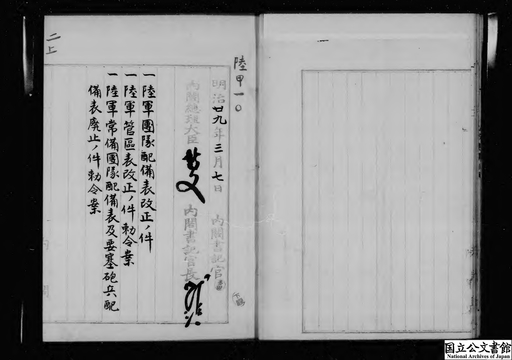 二上
陸甲一〇
明治廿九年三月七日
内閣総理大臣
内閣書記官長
内閣書記官
一陸軍團隊配備表改正ノ件
一陸軍管區表改正ノ件勅令案
一陸軍常備團隊配備表及要塞砲兵配
備表廃止ノ件勅令案
国立公文書館
National Archives of Japan